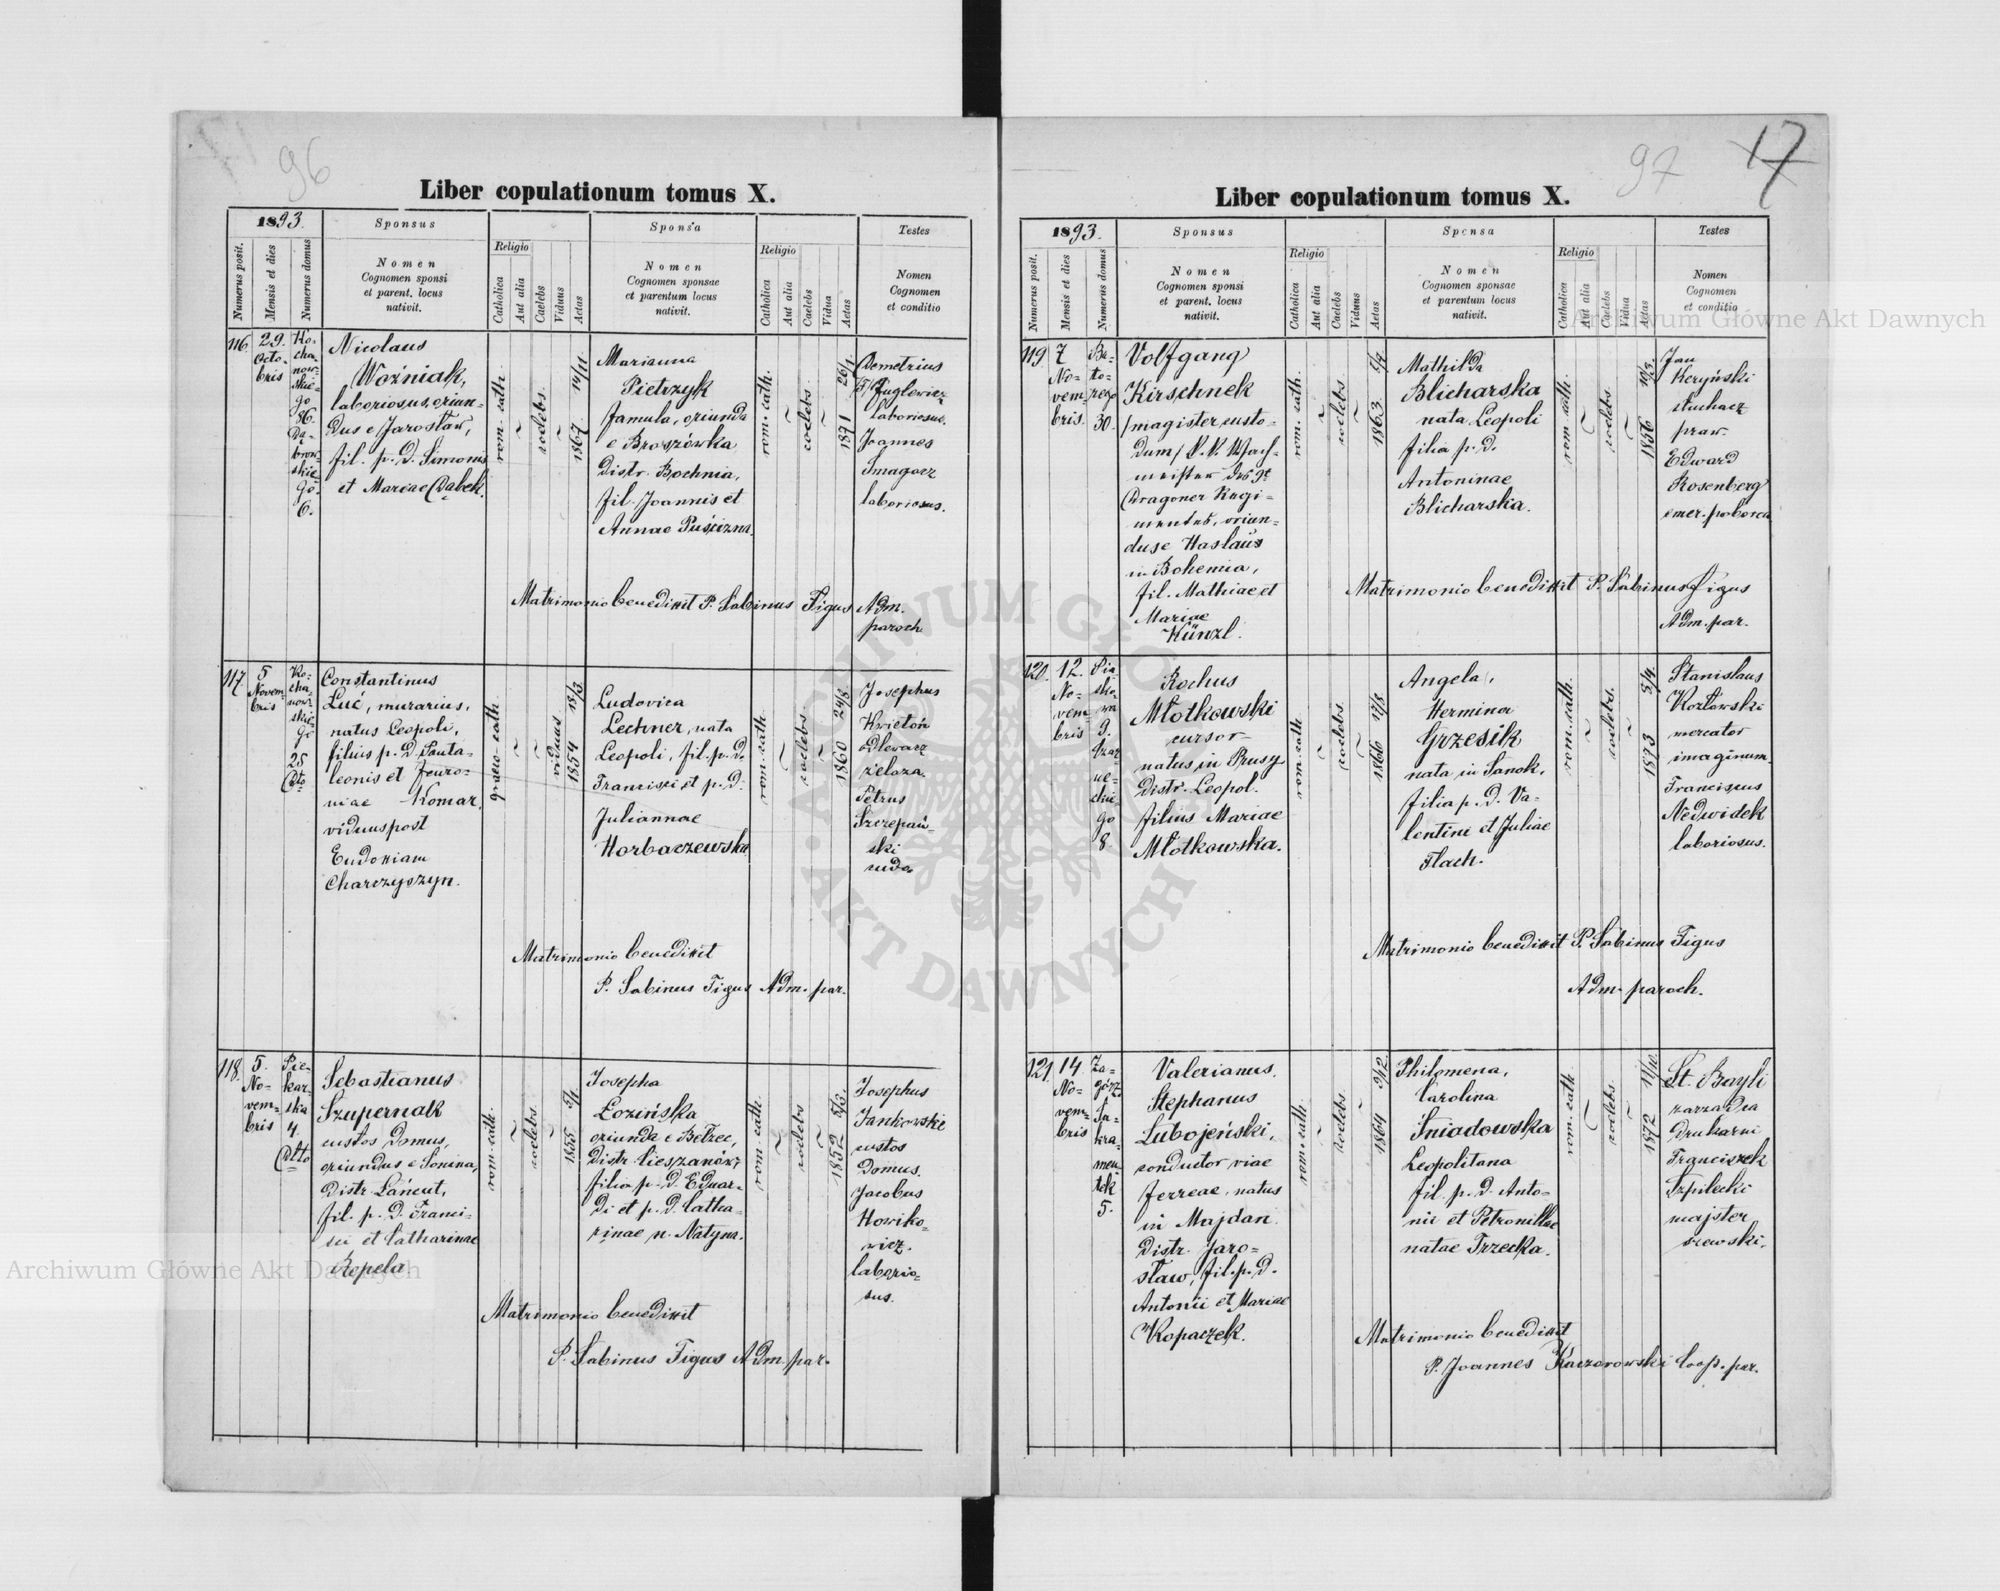 96
Liber copulationum tomus X.
1893.
Sponsus
Sponsa
Testes
Numerus posit.
Mensis et dies
Numerus domus
Nomen
Cognomen sponsi
et parent. locus
nativit.
Religio
Catholica
Aut alia
Caelebs
Viduus
Aetas
Nomen
Cognomen sponsae
et parentum locus
nativit.
Religio
Catholica
Aut alia
Caelebs
Vidua
Aetas
Nomen
Cognomen
et conditio
116.
29.
Octo-
bris
Ko-
cha-
now-
skie-
go
86.
Dą-
brow-
skie-
go.
6.
Nicolaus
Woźniak,
laboriosus, oriun-
dus e Jarosław,
fil. p. D. Simonis
et Mariae Dąbek.
rom. cath.
coelebs.
1867 14/11
Marianna
Pietrzyk
famula, oriunda
e Broszówka
Distr. Bochnia,
fil. Joannis et
Annae Puścizna.
rom. cath.
coelebs
1871 26/1
Demetrius
laboriosus.
Joannes
Smagacz
laboriosus.
Matrimonio benedixit P. Sabinus Figus Adm.
paroch.
117.
5
Novem-
bris
Ko-
cha-
now-
skie-
go
25
Dto
Constantinus
Łuć, murarius,
natus Leopoli,
filius p. D. Panta-
leonis et Feuro-
niae Komar,
viduus post
Eudoxiam
Charczyszyn.
graeco-cath.
viduus
1854 15/3
Ludovica
Lechner, nata
Leopoli, fil. p. D.
Francisci et p. D.
Juliannae
Horbaczewska
rom. cath.
coelebs.
1860 24/8
Josephus
Kwieton
odlewacz
żelaza.
Petrus
Szczepań-
ski
Matrimonio benedixit
P. Sabinus Figus Adm. par.
118.
5.
No-
vem-
bris
Pie-
kar-
ska
4.
Dtto
Sebastianus
Szupernak
custos domus,
oriundus e Sonina,
Distr. Łańcut,
fil. p. D. Franci-
sci et Catharinae
Repela
rom. cath.
coelebs
1855 5/1
Josepha
Łozińska
oriunda e Bełzec,
Distr. Cieszanów,
filia p. D. Eduar-
di et p. D. Catha-
rinae n. Natyna.
rom. cath.
coelebs
1852 5/3.
Josephus
Jankowski
custos
Domus.
Jacobus
Nowiko-
wicz.
laborio-
sus.
Matrimonio benedixit
P. Sabinus Figus Adm. par.
97
17
Liber copulationum tomus X.
1893.
Sponsus
Sponsa
Testes
Numerus posit.
Mensis et dies
Numerus domus
Nomen
Cognomen sponsi
et parent. locus
nativit.
Religio
Catholica
Aut alia
Caelebs
Viduus
Aetas
Nomen
Cognomen sponsae
et parentum locus
nativit.
Religio
Catholica
Aut alia
Caelebs
Vidua
Aetas
Nomen
Cognomen
et conditio
119.
7
No-
vem-
bris.
Ba-
to-
rego
30.
Volfgang
Kirschnek
/magister custo-
dum/ K.K. Wach-
meister des 9t
Dragoner Regi-
mentes, oriun-
dus e Haslaus
in Bohemia,
fil. Mathiae et
Mariae
Künzl.
rom. cath.
coelebs
1863 5/9
Mathilda
Blicharska
nata Leopoli
filia p. D.
Antoninae
Blicharska.
rom. cath.
coelebs
1856 10/3.
Jan
Keryński
słuchacz
praw.
Edward
Rosenberg
emer. poborca
Matrimonio benedixit P. Sabinus Figus
Adm. par.
120.
12.
No-
vem-
bris
Pia-
sko-
wa
9.
Czar
nie-
ckie-
go
8.
Rochus
Młotkowski
cursor
natus in Prusy
Distr. Leopol.
filius Mariae
Młotkowska.
rom. cath
coelebs
1866 17/8
Angela,
Hermina
Grzesik
nata in Sanok,
filia p. D. Va-
lentini et Juliae
Flach.
rom. cath.
coelebs.
1873 5/4.
Stanislaus
Kozłowski
mercator
imaginum.
Franciscus
Nedwidek
laboriosus.
Matrimonio benedixit P. Sabinus Figus
Adm. paroch.
121.
14.
No-
vem-
bris
Za-
górz.
Sa-
kra-
men
tek
5.
Valerianus,
Stephanus
Lubojeński,
conductor viae
ferreae, natus
in Majdan
Distr. Jaro-
sław, fil. p. D.
Antonii et Mariae
Kopaczek.
rom. cath.
coelebs
1864 9/12
Philomena,
Carolina
Śniadowska
Leopolitana
fil. p. D. Anto-
nii et Petronillae
natae Trzecka.
rom. cath
coelebs
1872 11/10.
St. Bayli
zarządca
Drukarni
Franciszek
Szpilecki
majster
szewski.
Matrimonio benedixit
P. Joannes Kaczorowski Coop. par.
Archiwum Główne Akt Dawnych
Archiwum Główne Akt Dawnych
ARCHIWUM GŁÓWNE AKT DAWNYCH